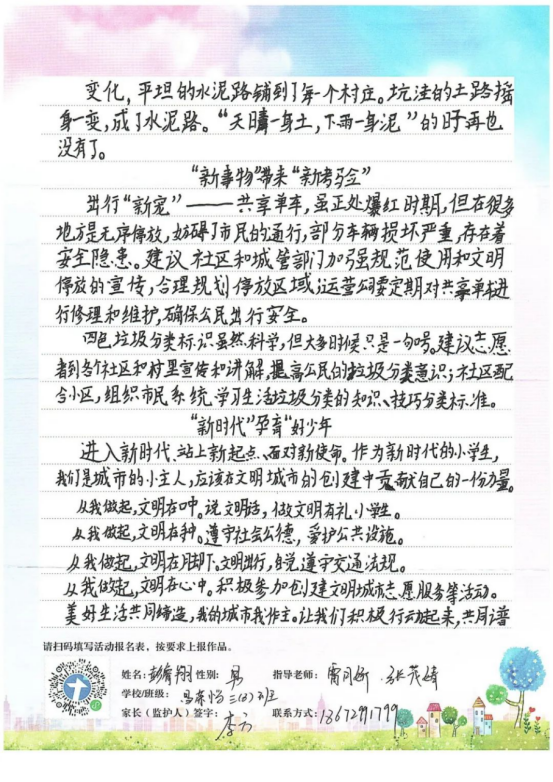 变化，平坦的水泥路铺到了每一个村庄。坑洼的土路摇
身一变，成了水泥路。“天晴一身土，下雨一身泥”的时再也
没有了。
“新事物”带来“新考验”
出行“新宠”——共享单车，虽正处爆红时期，但在很多
地方是无序停放，妨碍了市民的通行，部分车辆损坏严重，存在着
安全隐患。建议社区和城管部门加强规范使用和文明
停放的宣传，合理规划停放区域；运营公司要定期对共享单车进
行修理和维护，确保公民出行安全。
四色垃圾分类标识虽然科学，但大多时候只是一句号。建议志愿
者到各个社区和村里宣传和讲解，提高公民的垃圾分类意识；社区配
合小区，组织市民系统学习生活垃圾分类的知识、技巧分类标准。
“新时代”孕育“好少年”
进入新时代、站上新起点、面对新使命。作为新时代的小学生，
我们是城市的小主人，应该在文明城市的创建中贡献自己的一份力量。
从我做起，文明在口中。说文明话，做文明有礼小学生。
从我做起，文明在手中。遵守社会公德，爱护公共设施。
从我做起，文明在脚下。文明出行，自觉遵守交通法规。
从我做起，文明在心中。积极参加创建文明城市志愿服务等活动。
美好生活共同缔造，我的城市我作主。让我们积极行动起来，共同谱
请扫码填写活动报名表，按要求上报作品。
姓名： 性别：男 指导老师：
学校/班级：
家长（监护人）签字： 联系方式：18672991799